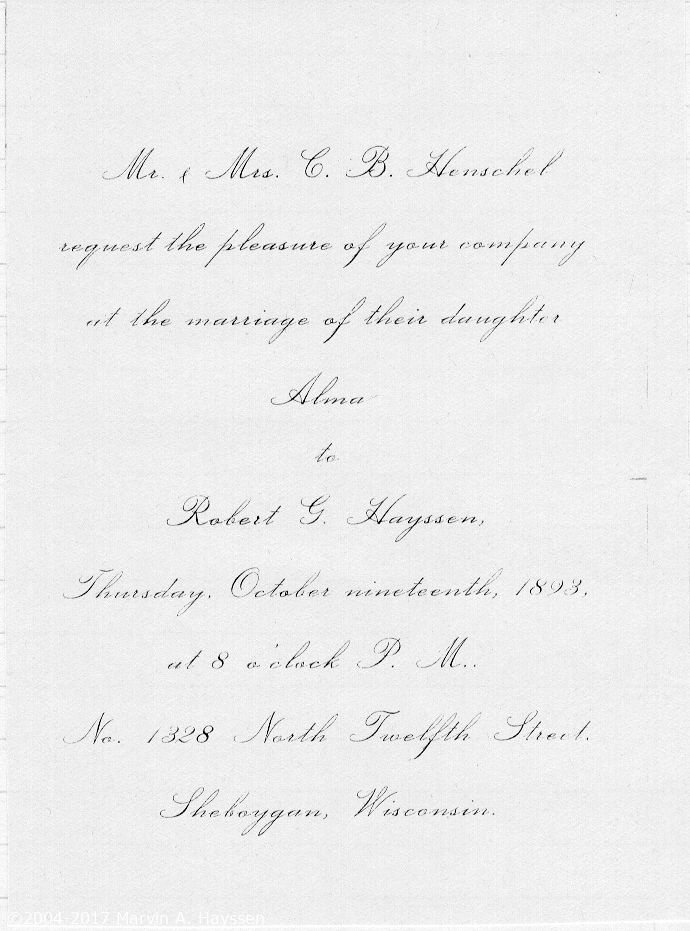 Mr. & Mrs. C. B. Henschel
request the pleasure of your company
at the marriage of their daughter
Alma
to
Robert G. Hayssen,
Thursday, October nineteenth, 1893,
at 8 o'clock P. M..
No. 1328 North Twelfth Street.
Sheboygan, Wisconsin.
©2004-2017 Marvin A. Hayssen